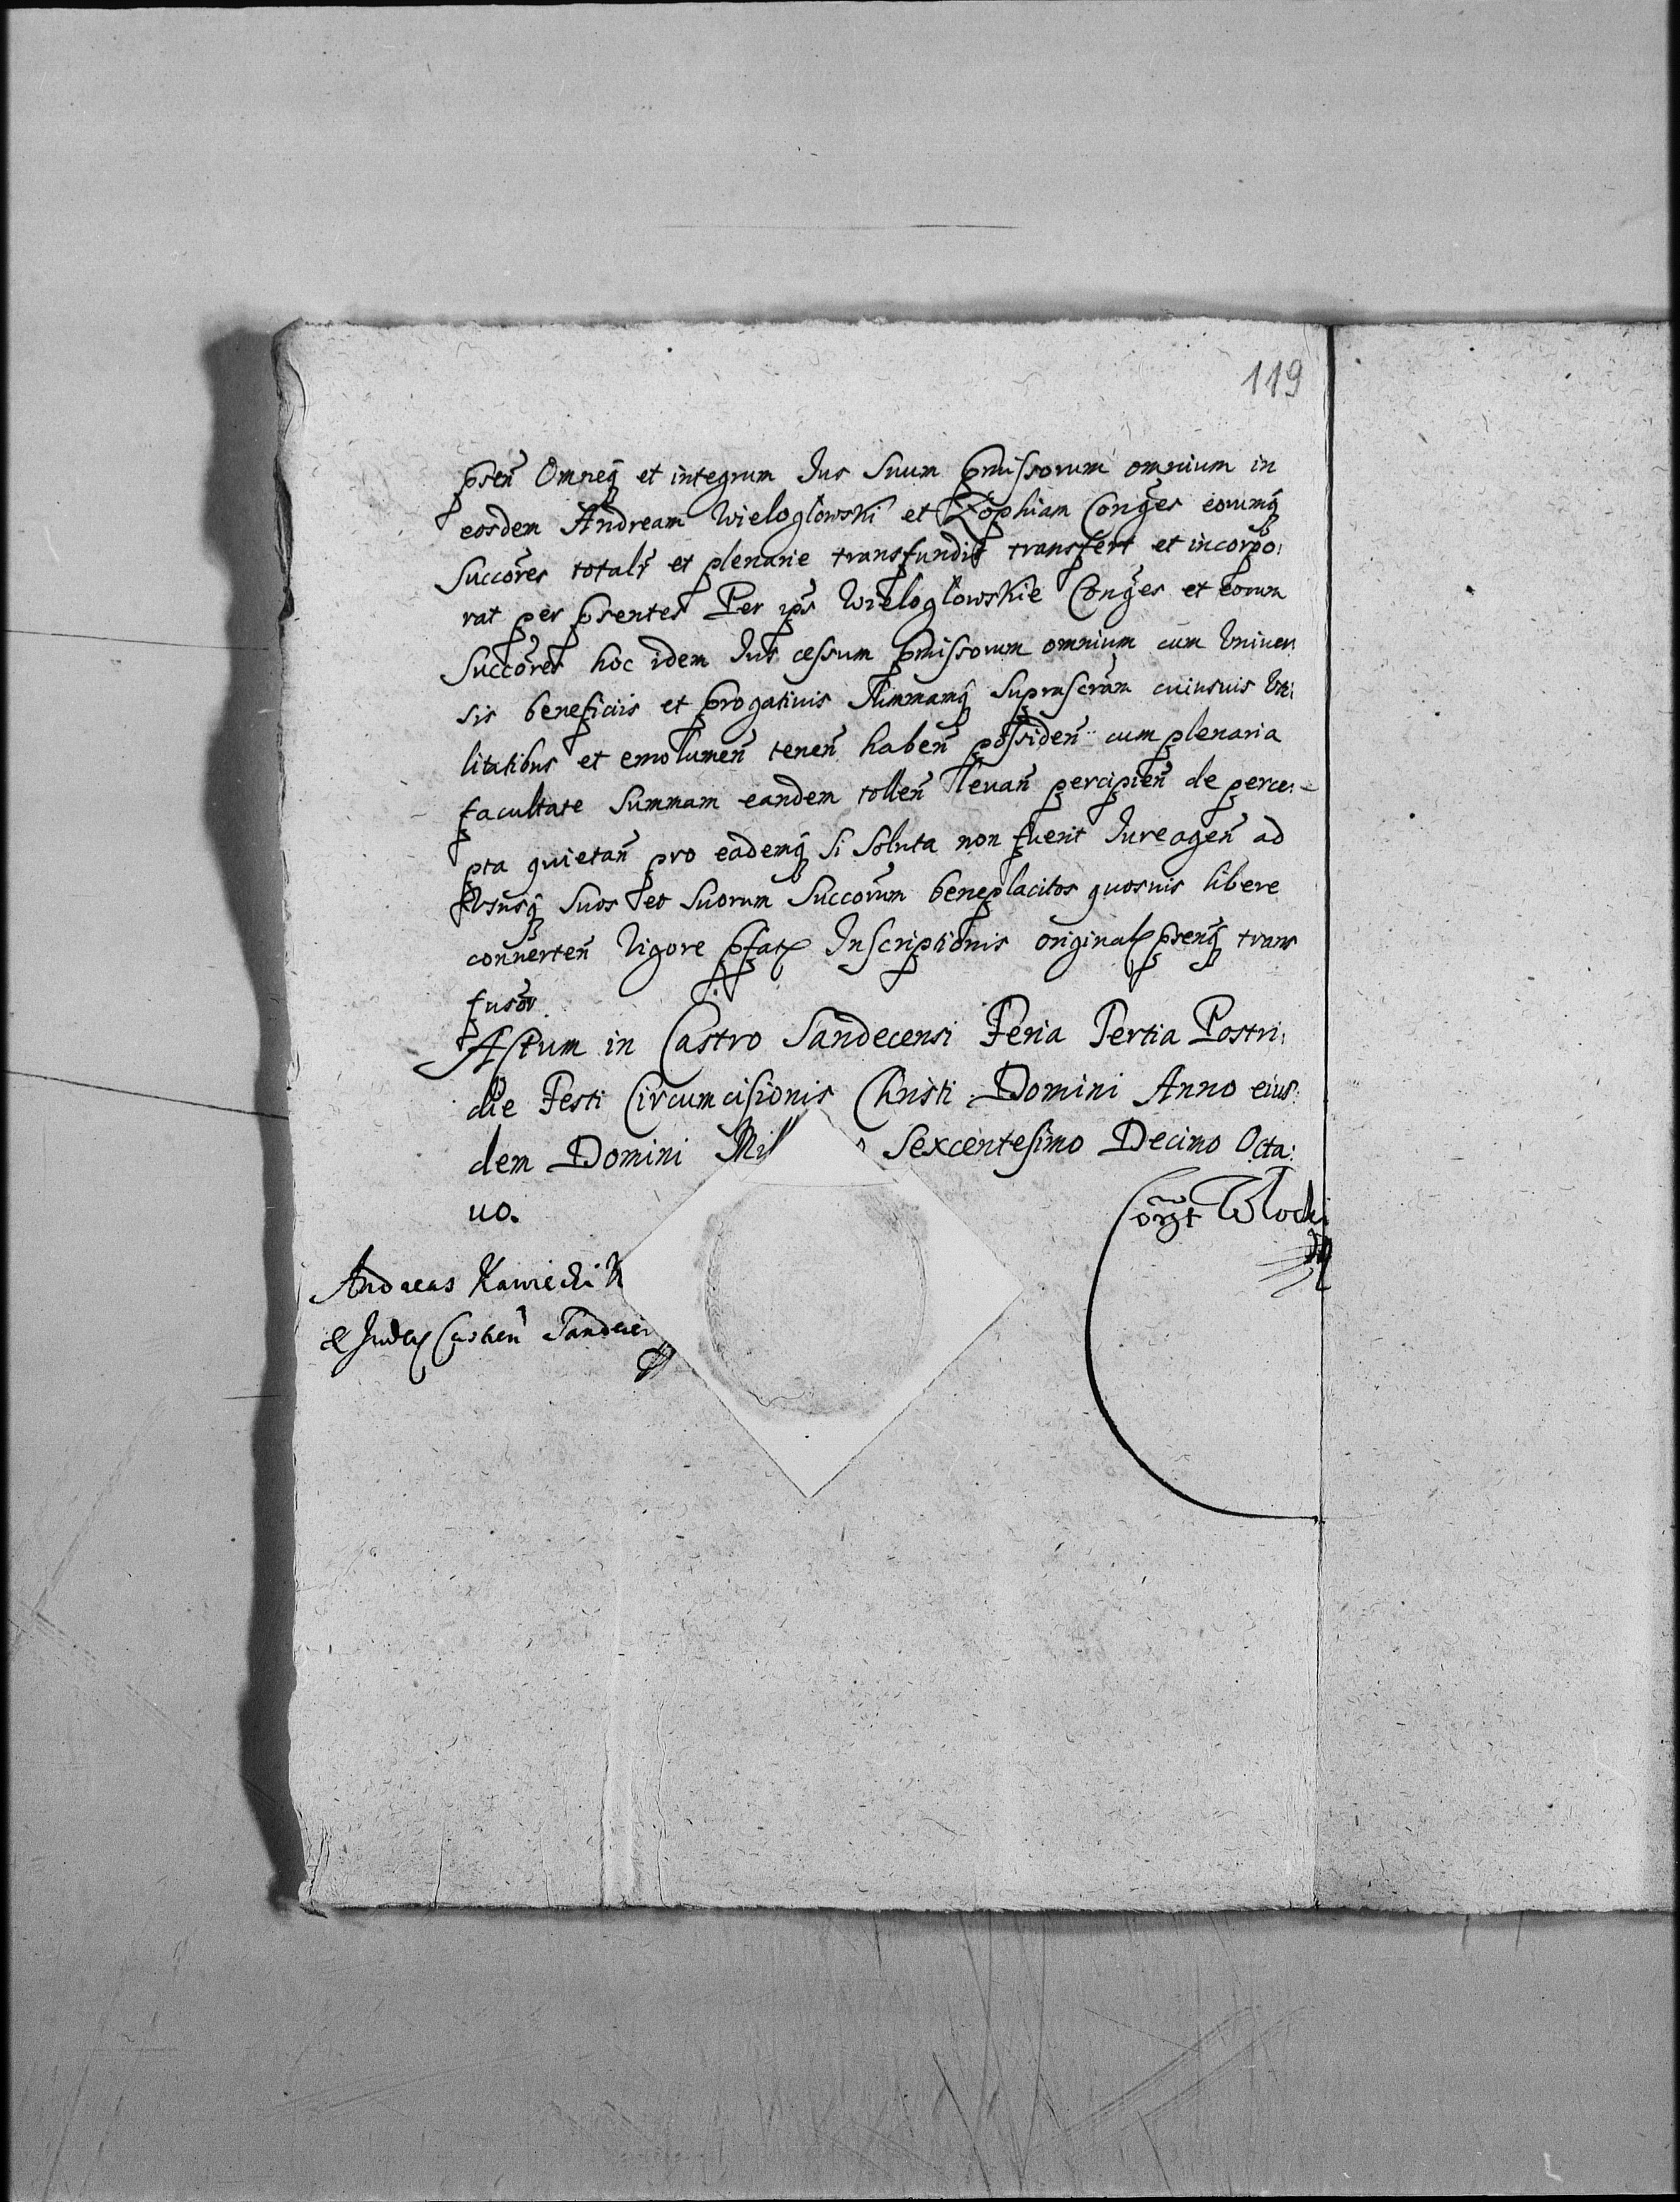 119
pseñ Omneq et integrum Jus Suum pmissorum omnium in
eosdem Andream Wieloglowski et Zophiam Conges eorumq
Succores totalr et plenarie transfundit transfert et incorpo:
rat per psentes Per ips Wieloglowskie Conges et eorum
Succores hoc idem Jus cessum pmissorum omnium cum Vniver
sis beneficiis et progativis Summamq suprascram cuiusuis Vti
litatibus et emolumeñ teneñ habeñ possideñ cum plenaria
facultate Summam eandem tolleñ levañ percipieñ de perce:
pta quietañ pro eademq si soluta non fuerit Jure ageñ ad
Vsusq suos et suorum Succorum beneplacitos quosuis libere
converteñ Vigore pfat Inscriptionis original psenq trans
fusor.
Actum in Castro Sandecensi Feria Tertia Postri:
die Festi Circumcisionis Christi Domini Anno eius:
dem Domini Mil Sexcentesimo Decimo Octa:
uo.
Corxt Wlocki
Andreas Kawiecki V
& Judex Castreñ Sandecen